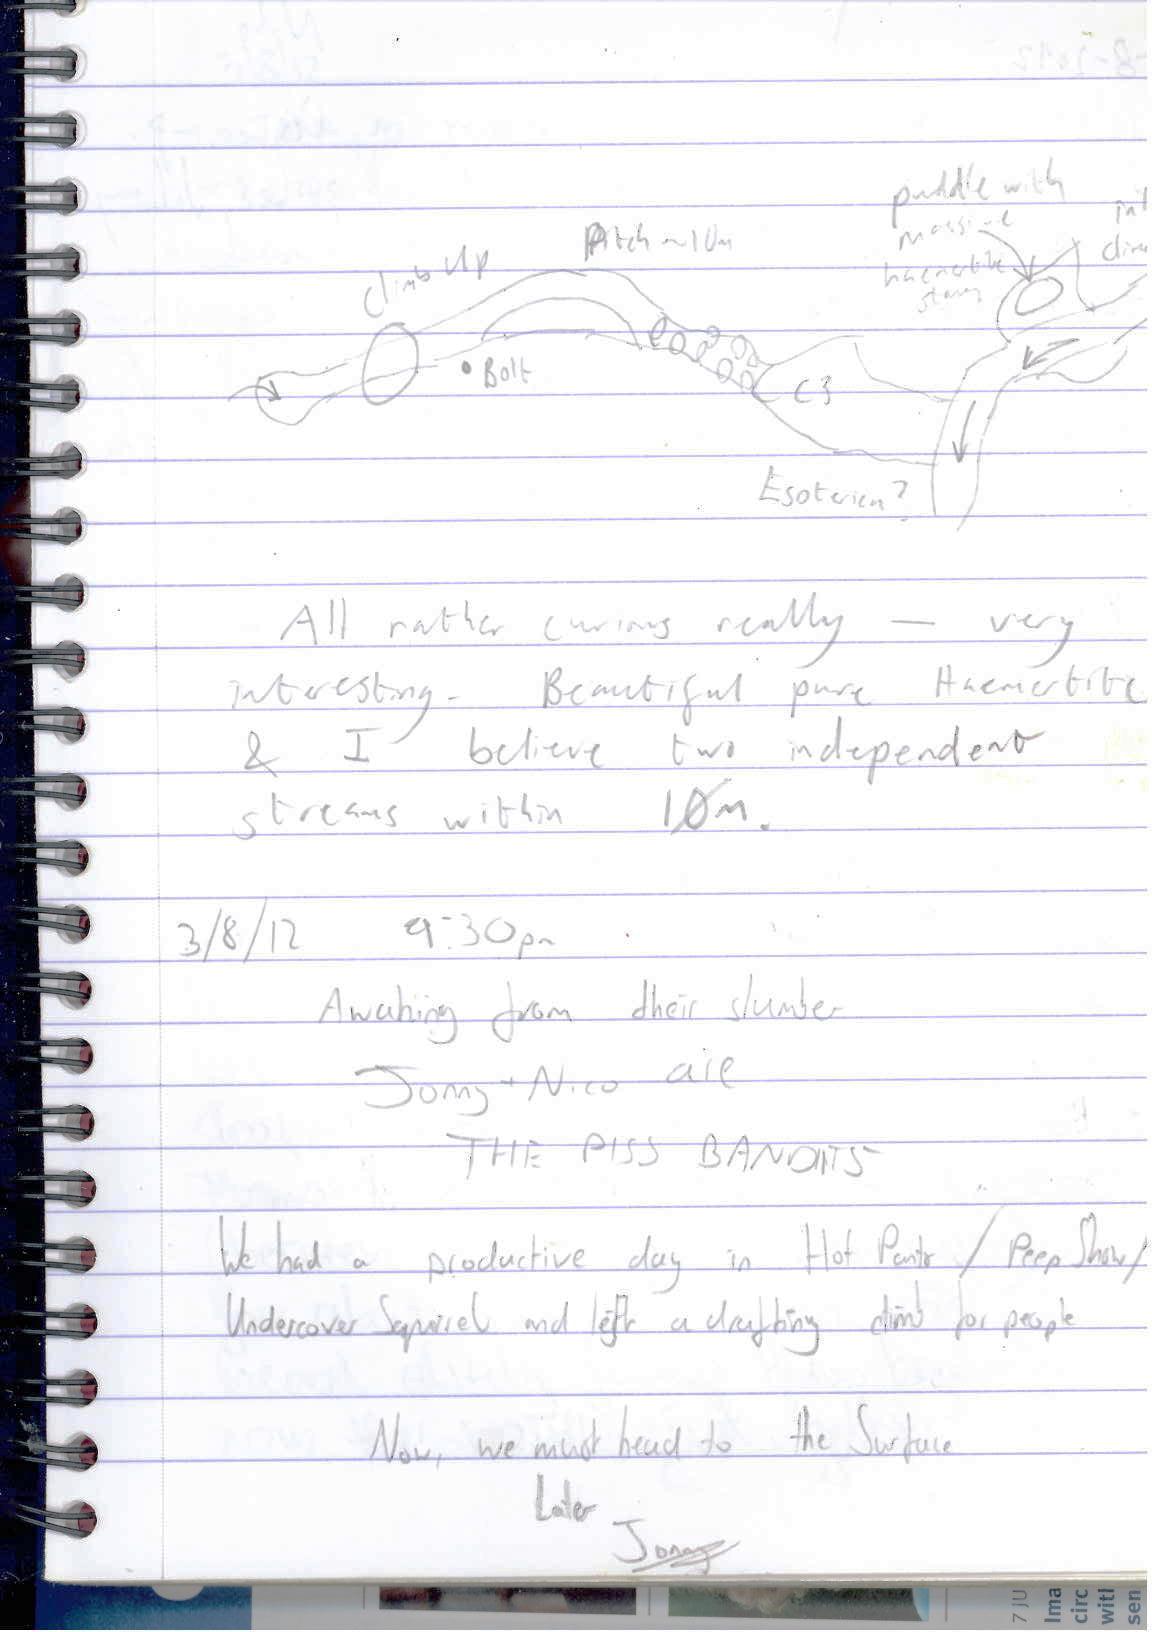 puddle with
massive
haemertite
Pitch ~10m
Climb Up
Bolt
C3
Esoterica?
All rather curious really — very
interesting. Beautiful pure Haemertite
& I believe two independent
streams within 10m.
3/8/12 9:30pm
Awaking from their slumber
Jonny + Nico are
THE PISS BANDITS
We had a productive day in Hot Pants / Peep Show/
Undercover Squirrel and left a drafting climb for people
Now, we must head to the Surface
Later
Jonny
7 JU
Ima
circ
witl
sen